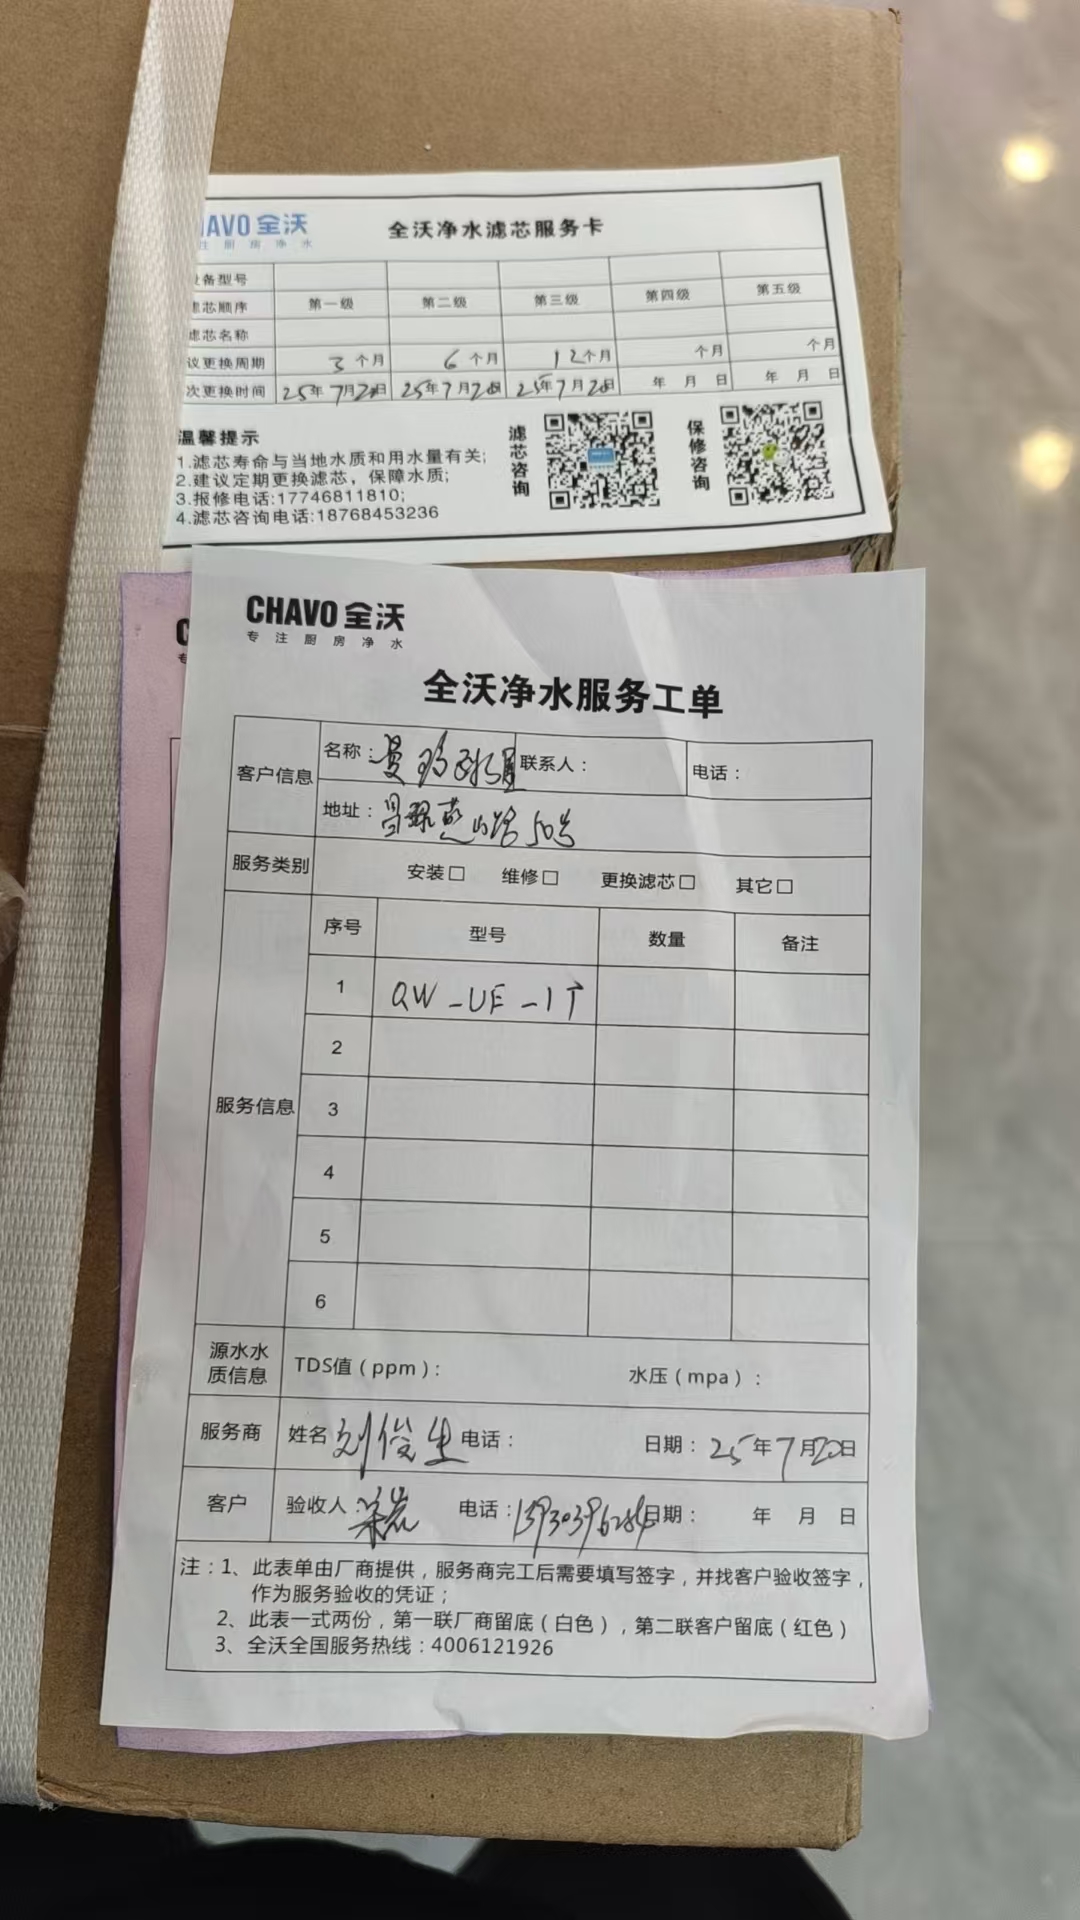 HAVO 全沃
注厨房净水
全沃净水滤芯服务卡
设备型号
滤芯顺序 第一级 第二级 第三级 第四级 第五级
滤芯名称
议更换周期 3个月 6个月 12个月 个月 个月
次更换时间 25年7月20日 25年7月20日 25年7月20日 年 月 日 年 月 日
温馨提示
1.滤芯寿命与当地水质和用水量有关;
2.建议定期更换滤芯，保障水质;
3.报修电话:17746811810;
4.滤芯咨询电话:18768453236
滤芯咨询
保修咨询
CHAVO 全沃
专注厨房净水
全沃净水服务工单
客户信息 名称： 联系人： 电话：
地址： 燕山路50号
服务类别 安装□ 维修□ 更换滤芯□ 其它□
服务信息 序号 型号 数量 备注
1 QW-UF-1T
2
3
4
5
6
源水水质信息 TDS值（ppm）： 水压（mpa）：
服务商 姓名 刘俊生 电话： 日期：25年7月20日
客户 验收人： 电话： 日期： 年 月 日
注：1、此表单由厂商提供，服务商完工后需要填写签字，并找客户验收签字，
作为服务验收的凭证；
2、此表一式两份，第一联厂商留底（白色），第二联客户留底（红色）
3、全沃全国服务热线：4006121926